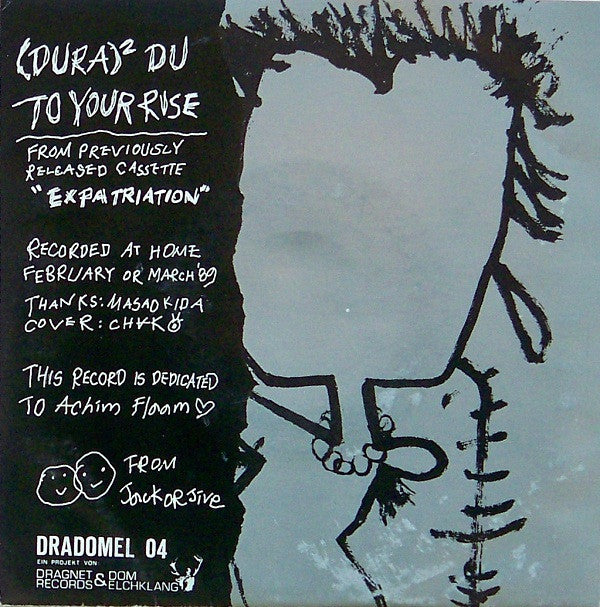 (DURA)² DU
TO YOUR RUSE
FROM PREVIOUSLY
RELEASED CASSETTE
"EXPATRIATION"
RECORDED AT HOME
FEBRUARY OR MARCH '89
THANKS: MASAO KIDA
COVER: CHAKO
THIS RECORD IS DEDICATED
TO Achim Flaam ♡
FROM
Jack OR Jive
DRADOMEL 04
EIN PROJEKT VON:
DRAGNET & DOM
RECORDS ELCHKLANG